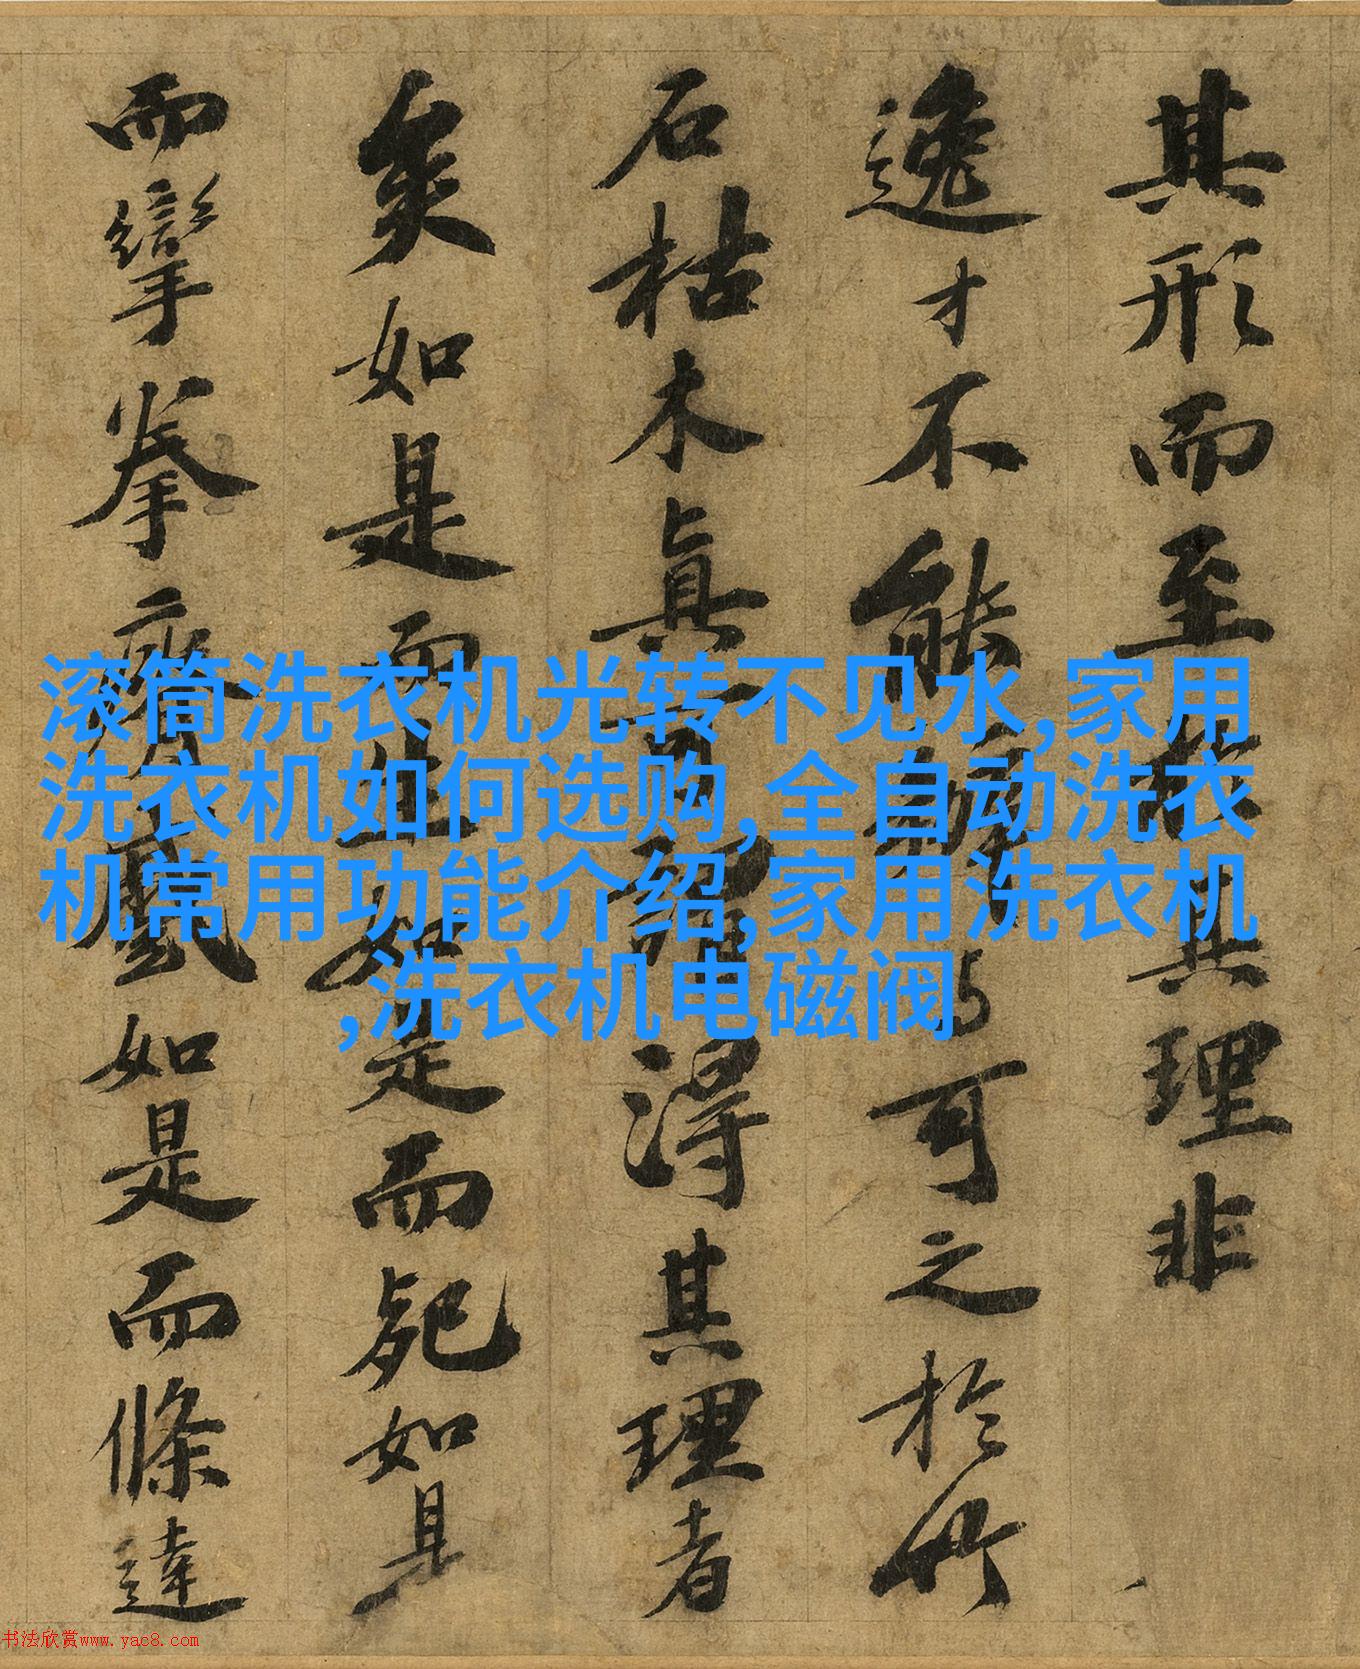 其形而至於其理非
逸才不能辨與可之於竹
石枯木真可謂得其理者
矣如是而生如是而死如是
而攣拳瘠蹙如是而條達
滚筒洗衣机光转不见水,家用
洗衣机如何选购,全自动洗衣
机常用功能介绍,家用洗衣机
,洗衣机电磁阀
书法欣赏www.yac8.com